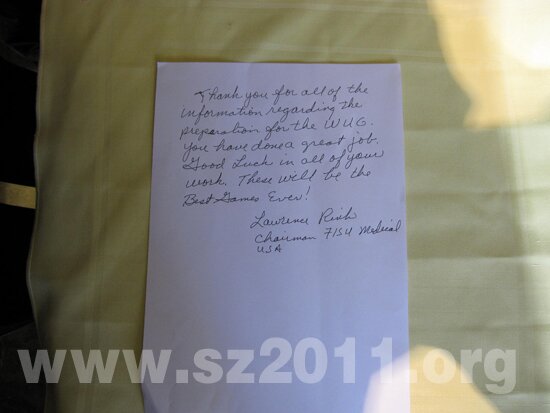 Thank you for all of the
information regarding the
preparation for the WUG.
You have done a great job.
Good Luck in all of your
work. These will be the
Best Games Ever!
Lawrence
Chairman FISU Medical
USA
www.sz2011.org